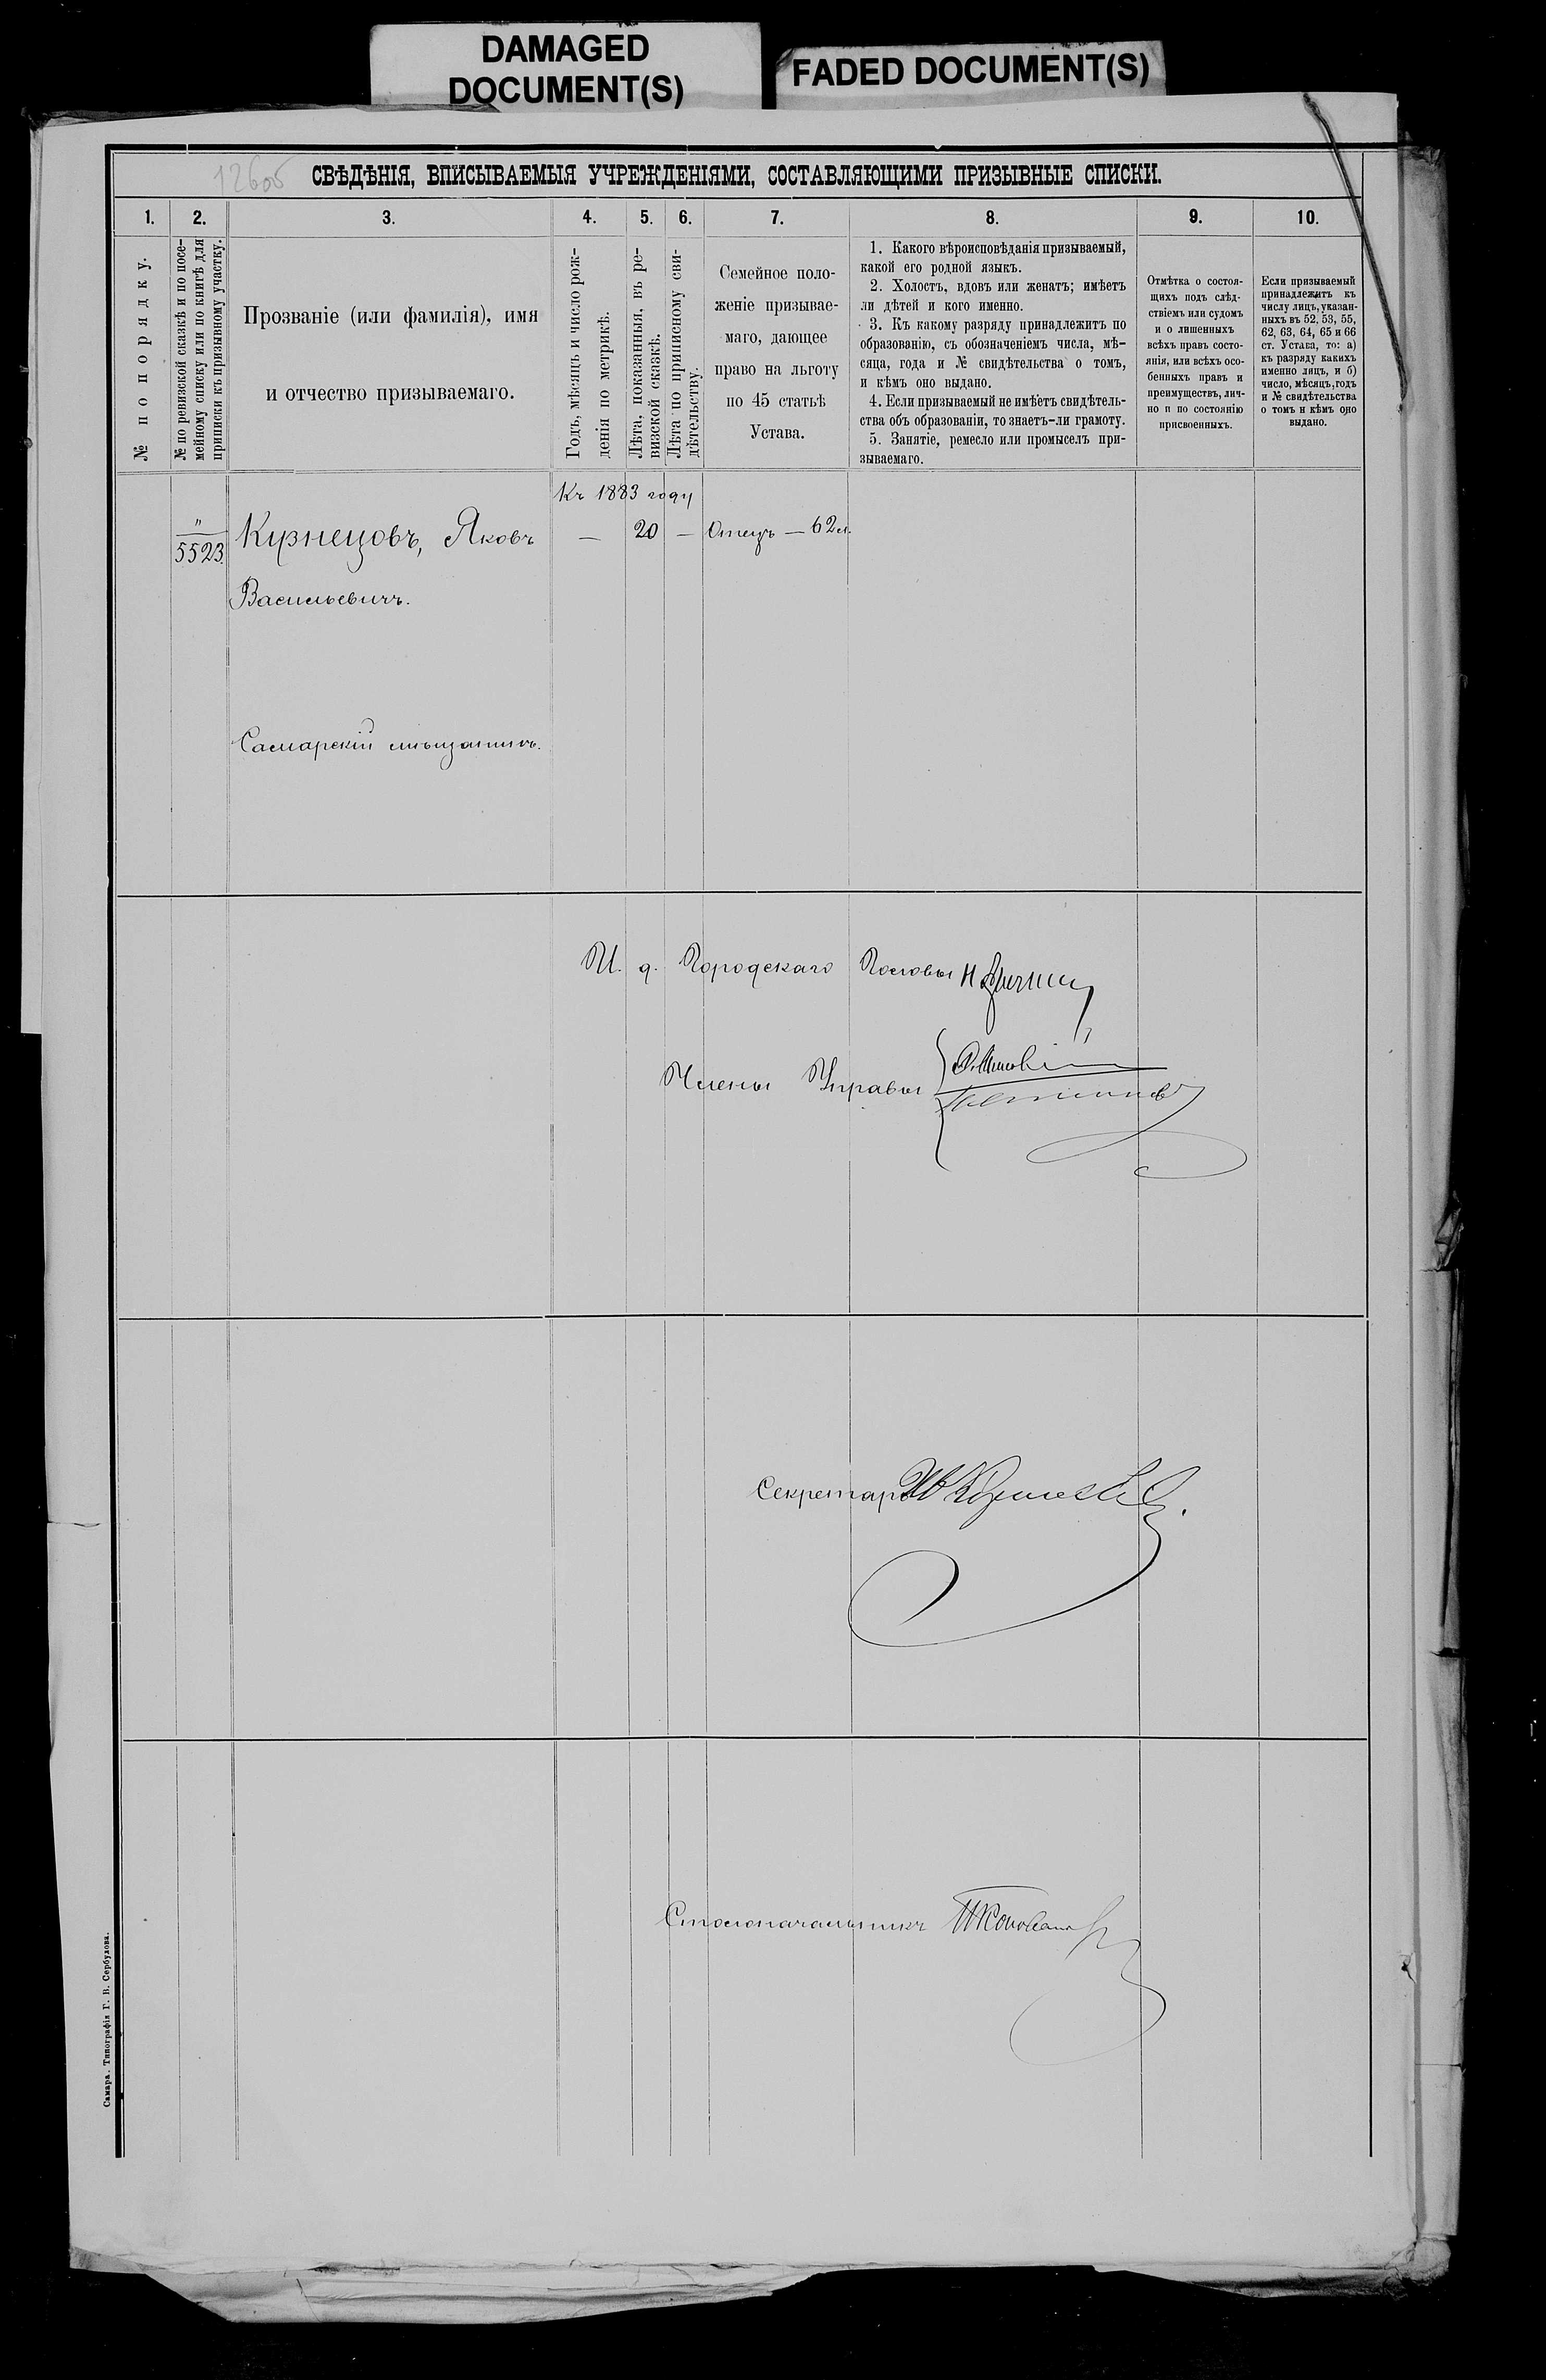 DAMAGED
DOCUMENT(S)
FADED DOCUMENT(S)
126об
СВѢДѢНІЯ, ВПИСЫВАЕМЫЯ УЧРЕЖДЕНІЯМИ, СОСТАВЛЯЮЩИМИ ПРИЗЫВНЫЕ СПИСКИ.
1.
2.
3.
4.
5.
6.
7.
8.
9.
10.
№ по порядку.
№ по ревизской сказкѣ и по посе-
мейному списку или по книгѣ для
приписки къ призывному участку.
Прозваніе (или фамилія), имя
и отчество призываемаго.
Годъ, мѣсяцъ и число рож-
денія по метрикѣ.
Лѣта, показанныя, въ ре-
визской сказкѣ.
Лѣта по приписному сви-
дѣтельству.
Семейное поло-
женіе призывае-
маго, дающее
право на льготу
по 45 статьѣ
Устава.
1. Какого вѣроисповѣданія призываемый,
какой его родной языкъ.
2. Холостъ, вдовъ или женатъ; имѣетъ
ли дѣтей и кого именно.
3. Къ какому разряду принадлежитъ по
образованію, съ обозначеніемъ числа, мѣ-
сяца, года и № свидѣтельства о томъ,
и кѣмъ оно выдано.
4. Если призываемый не имѣетъ свидѣтель-
ства объ образованіи, то знаетъ-ли грамоту.
5. Занятіе, ремесло или промыселъ при-
зываемаго.
Отмѣтка о состоя-
щихъ подъ слѣд-
ствіемъ или судомъ
и о лишенныхъ
всѣхъ правъ состо-
янія, или всѣхъ осо-
бенныхъ правъ и
преимуществъ, лич-
но п по состоянію
присвоенныхъ.
Если призываемый
принадлежитъ къ
числу лицъ, указан-
ныхъ въ 52, 53, 55,
62, 63, 64, 65 и 66
ст. Устава, то: а)
къ разряду какихъ
именно лицъ, и б)
число, мѣсяцъ, годъ
и № свидѣтельства
о томъ и кѣмъ оно
выдано.
Къ 1883 году
"
5523.
Кузнецовъ, Яковъ
—
20
—
Отецъ — 62 л.
Васильевичъ.
Самарскій мѣщанинъ.
И. д. Городскаго Головы
Члены Управы
Секретарь
Столоначальникъ
Самара. Типографія Г. В. Сербулова.